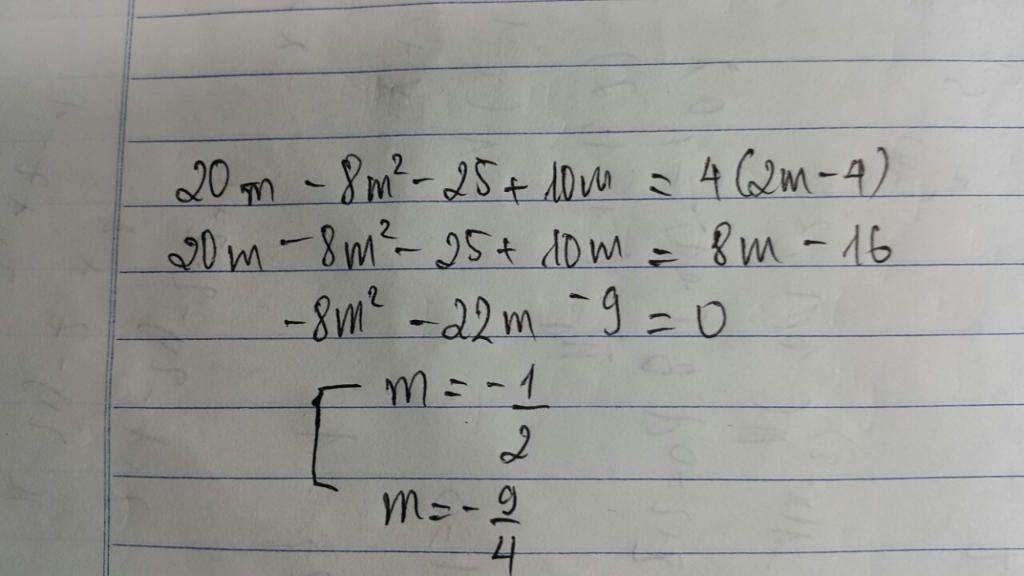 20m - 8m² - 25 + 10m = 4(2m - 4)
20m - 8m² - 25 + 10m = 8m - 16
-8m² - 22m - 9 = 0
[ m = -1/2
m = -9/4